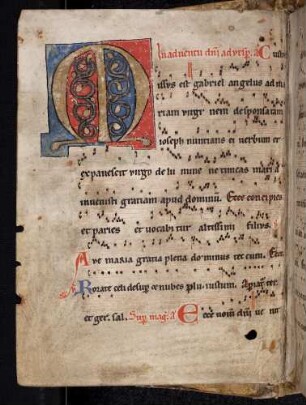 In aduentu dñi ad uesp. a Custo
issus est gabriel angelus ad ma
riam uirgi nem desponsatam
ioseph nuntians ei uerbum et
expauescit uirgo de lu mine ne timeas mari a
inuenisti gratiam apud dominū. Ecce concipies
et paries et uocabi tur altissimi filius.
Aue maria gratia plena do minus te cum.
Rorate celi desup et nubes plu. iustum. Apiat. ter.
et ger. sal. Sup mag. a Ecce nom dñi ue nit